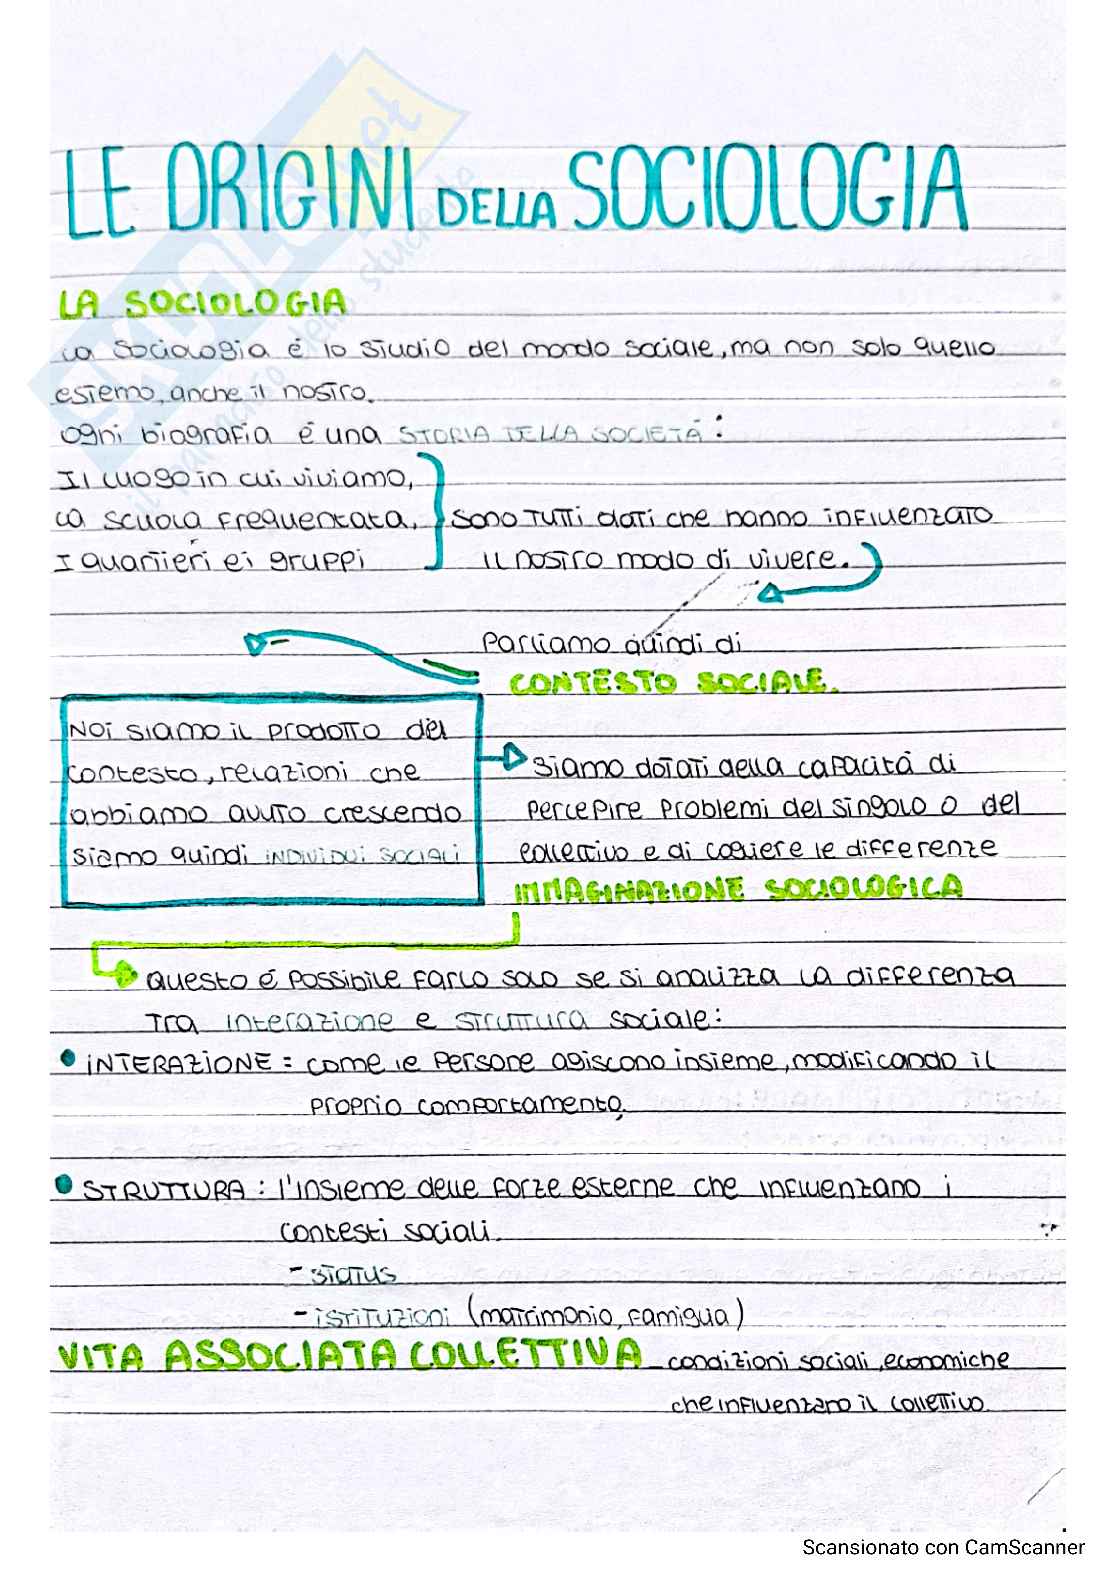 LE ORIGINI DELLA SOCIOLOGIA
LA SOCIOLOGIA
La sociologia é lo studio del mondo sociale, ma non solo quello
esterno, anche il nostro.
Ogni biografia é una STORIA DELLA SOCIETÁ:
Il luogo in cui viviamo,
La scuola frequentata,
I quartieri e i gruppi
sono tutti dati che hanno influenzato
il nostro modo di vivere.
Parliamo quindi di
CONTESTO SOCIALE.
Noi siamo il prodotto del
contesto, relazioni che
abbiamo avuto crescendo
siamo quindi INDIVIDUI SOCIALI
Siamo dotati della capacitá di
percepire problemi del singolo o del
collettivo e di cogliere le differenze
IMMAGINAZIONE SOCIOLOGICA
Questo é possibile farlo solo se si analizza la differenza
tra interazione e struttura sociale:
• INTERAZIONE = come le persone agiscono insieme, modificando il
proprio comportamento.
• STRUTTURA: l'insieme delle forze esterne che influenzano i
contesti sociali.
- status
- istituzioni (matrimonio, famiglia)
VITA ASSOCIATA COLLETTIVA condizioni sociali, economiche
che influenzano il collettivo.
SKUOLA.net
il paradiso dello studente
Scansionato con CamScanner